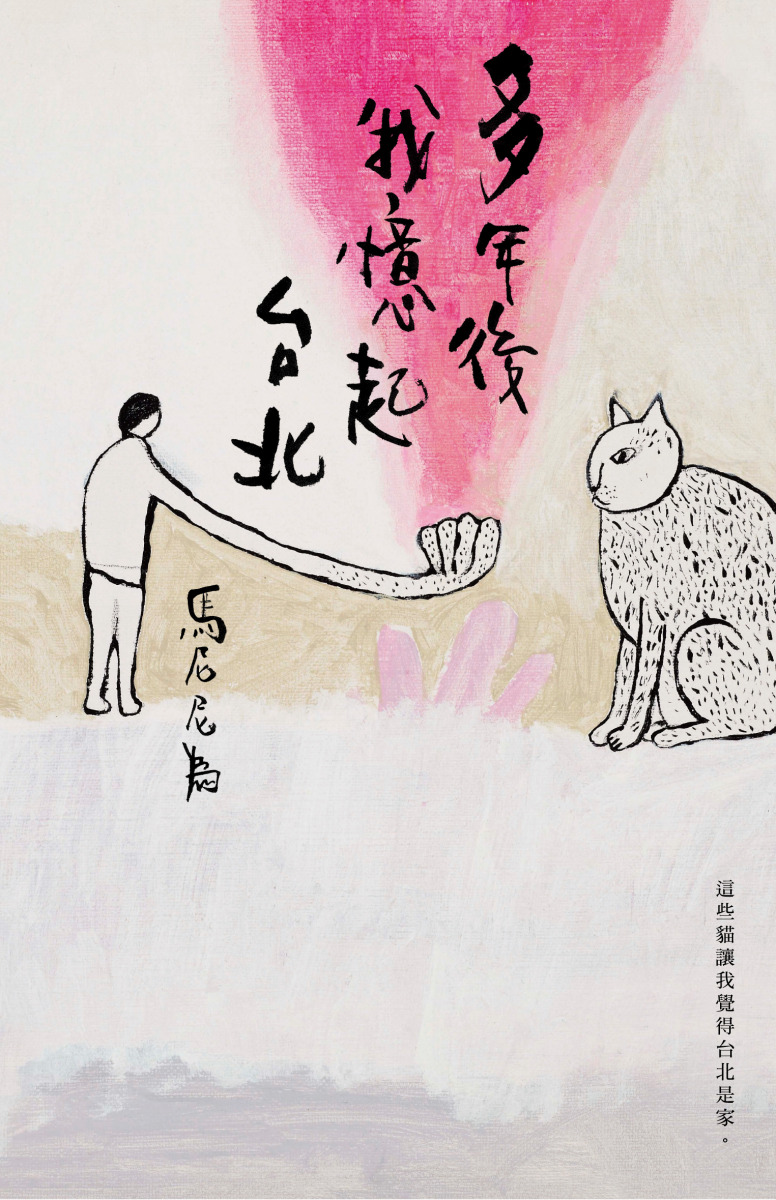 多年後
我憶起
台北
馬尼尼為
這些貓讓我覺得台北是家。